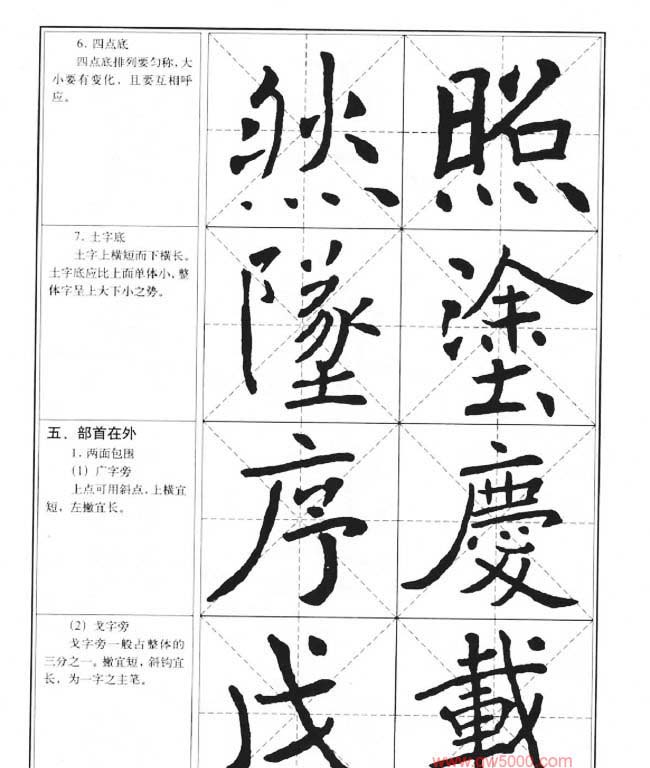 6. 四点底
四点底排列要匀称，大
小要有变化，且要互相呼
应。
然 照
7. 土字底
土字上横短而下横长。
土字底应比上面单体小，整
体字呈上大下小之势。
墜 塗
五、部首在外
1. 两面包围
(1) 广字旁
上点可用斜点，上横宜
短，左撇宜长。
序 慶
(2) 戈字旁
戈字旁一般占整体的
三分之一。撇宜短，斜钩宜
长，为一字之主笔。
戍 載
www.gw5000.com